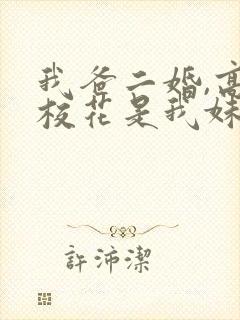 我爸二婚,高
校花是我妹
許沛潔